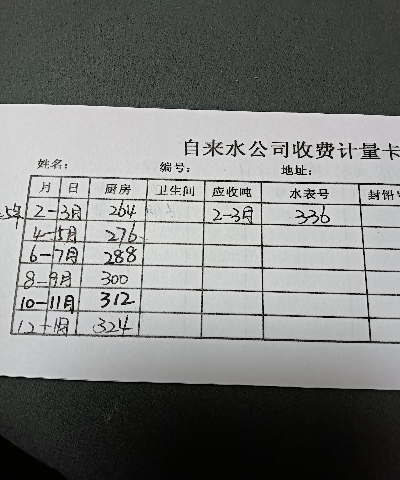 自来水公司收费计量卡
姓名: 编号: 地址:
月 日 厨房 卫生间 应收吨 水表号 封铅号
2-3月 264 2-3月 336
4-5月 276
6-7月 288
8-9月 300
10-11月 312
12-1月 324